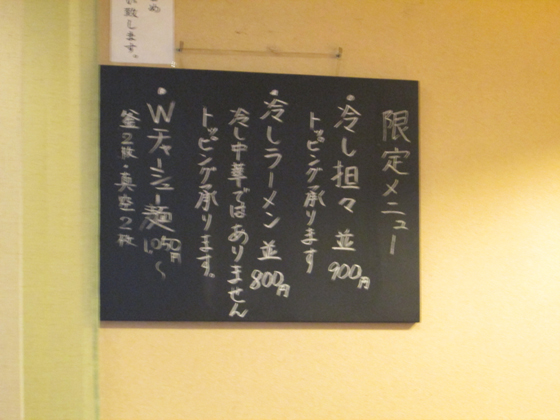 限定メニュー
・冷し担々 並 900円
トッピング承ります
・冷しラーメン 並 800円
冷し中華ではありません
トッピング承ります。
・Wチャーシュー麺 1,050円〜
釜2枚・真空2枚
致します。